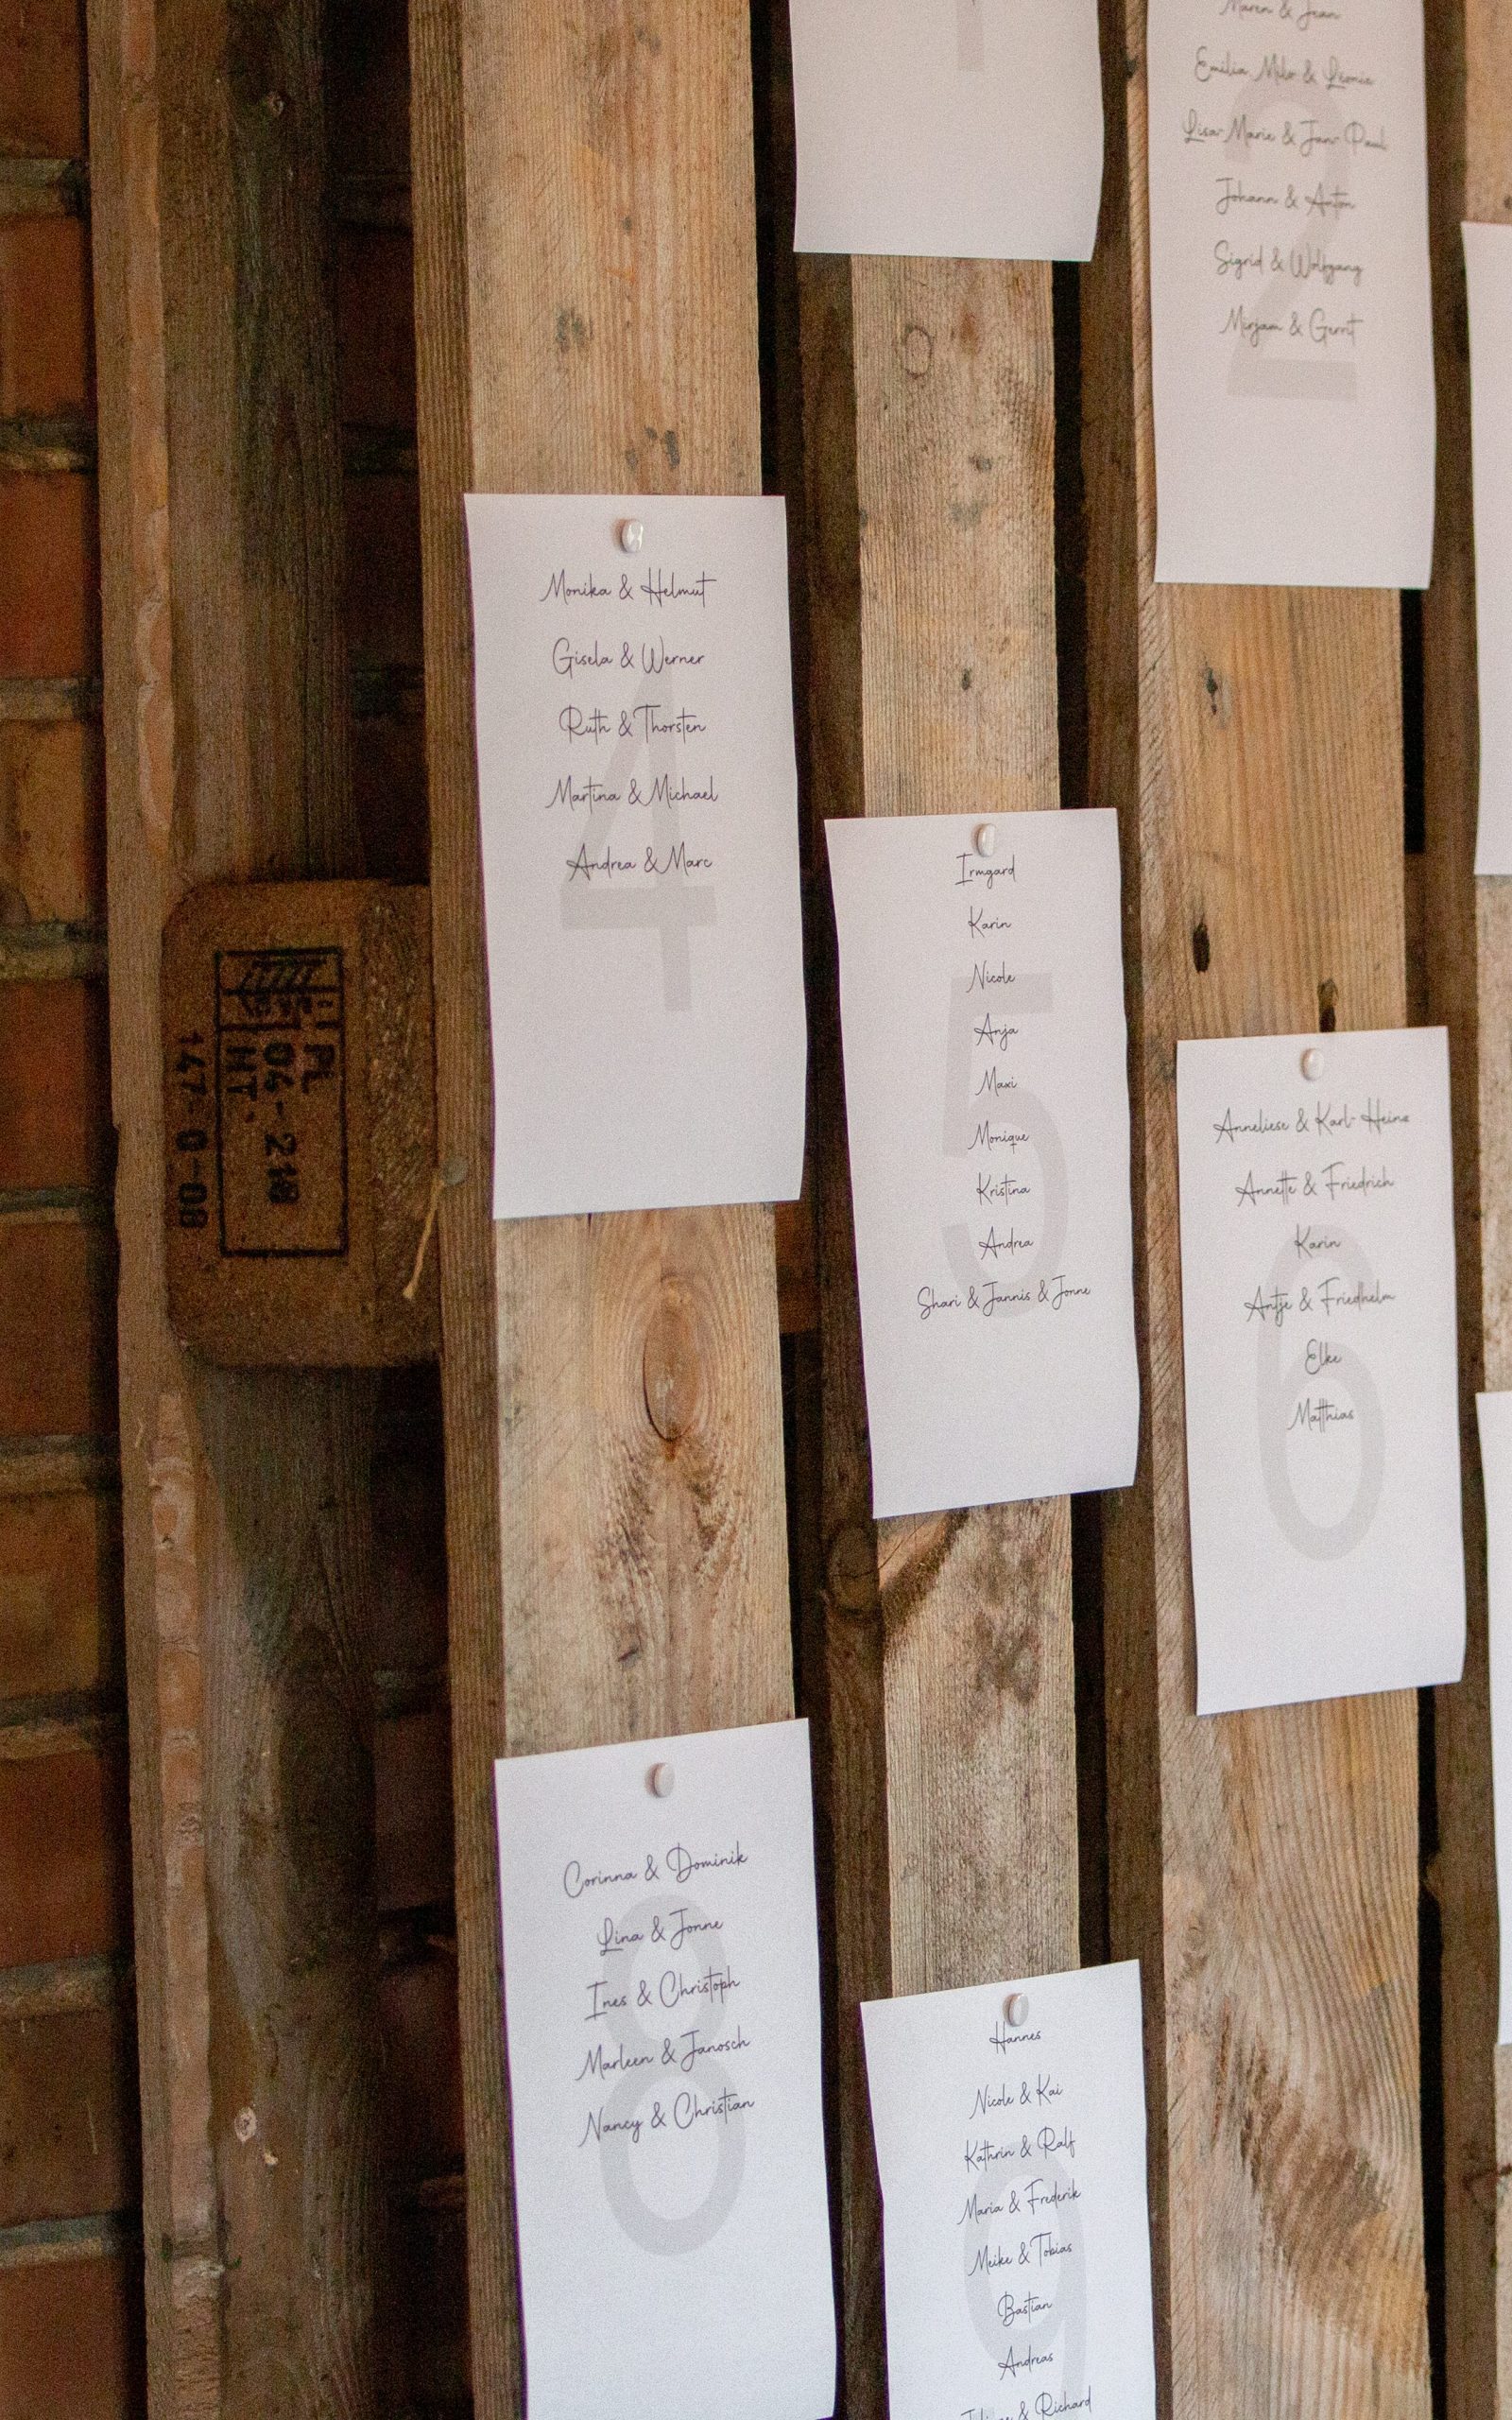 1
Maren & Jean
Emilia, Milo & Leonie
Lisa-Marie & Jan-Paul
Johann & Anton
Sigrid & Wolfgang
Mirjam & Gerrit
2
Monika & Helmut
Gisela & Werner
Ruth & Thorsten
Martina & Michael
Andrea & Marc
4
Irmgard
Karin
Nicole
Anja
Maxi
Monique
Kristina
Andrea
Shari & Jannis & Jonne
5
Anneliese & Karl-Heinz
Annette & Friedrich
Karin
Antje & Friedhelm
Elke
Matthias
6
PL
04-218
HT
147-0-08
Corinna & Dominik
Lina & Jonne
Ines & Christoph
Marleen & Janosch
Nancy & Christian
8
Hannes
Nicole & Kai
Kathrin & Ralf
Maria & Frederik
Meike & Tobias
Bastian
Andreas
& Richard
9